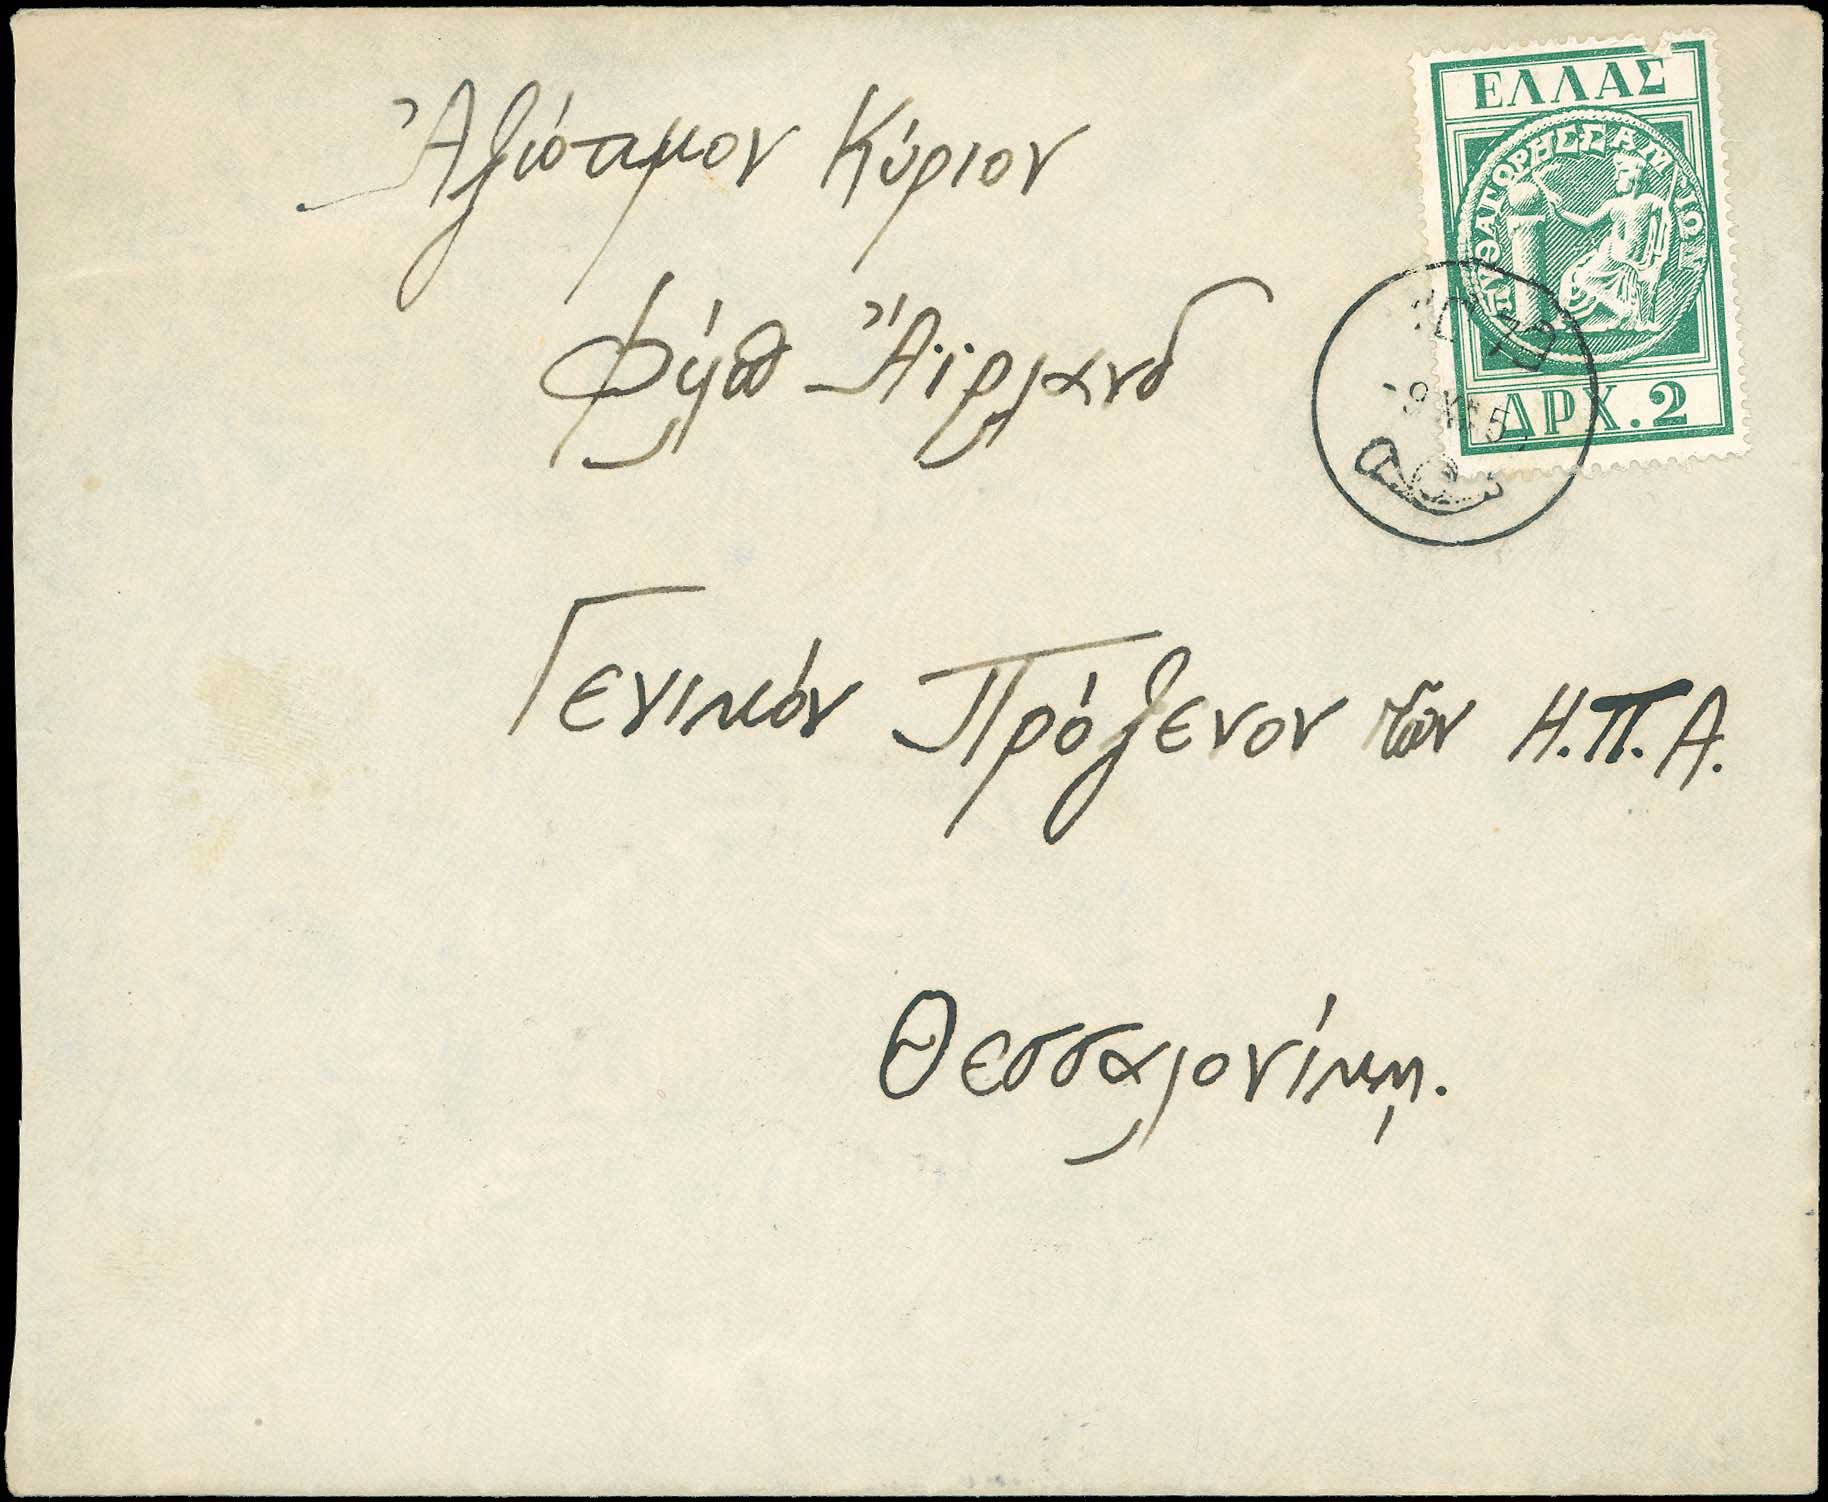 Ἀξιότιμον Κύριον
Φῆλδ Ἄϊρλανδ
Γενικόν Πρόξενον τῶν Η.Π.Α.
Θεσσαλονίκην.
ΕΛΛΑΣ
ΠΥΘΑΓΟΡΗΣ ΣΑΜΙΩΝ
ΔΡΧ. 2